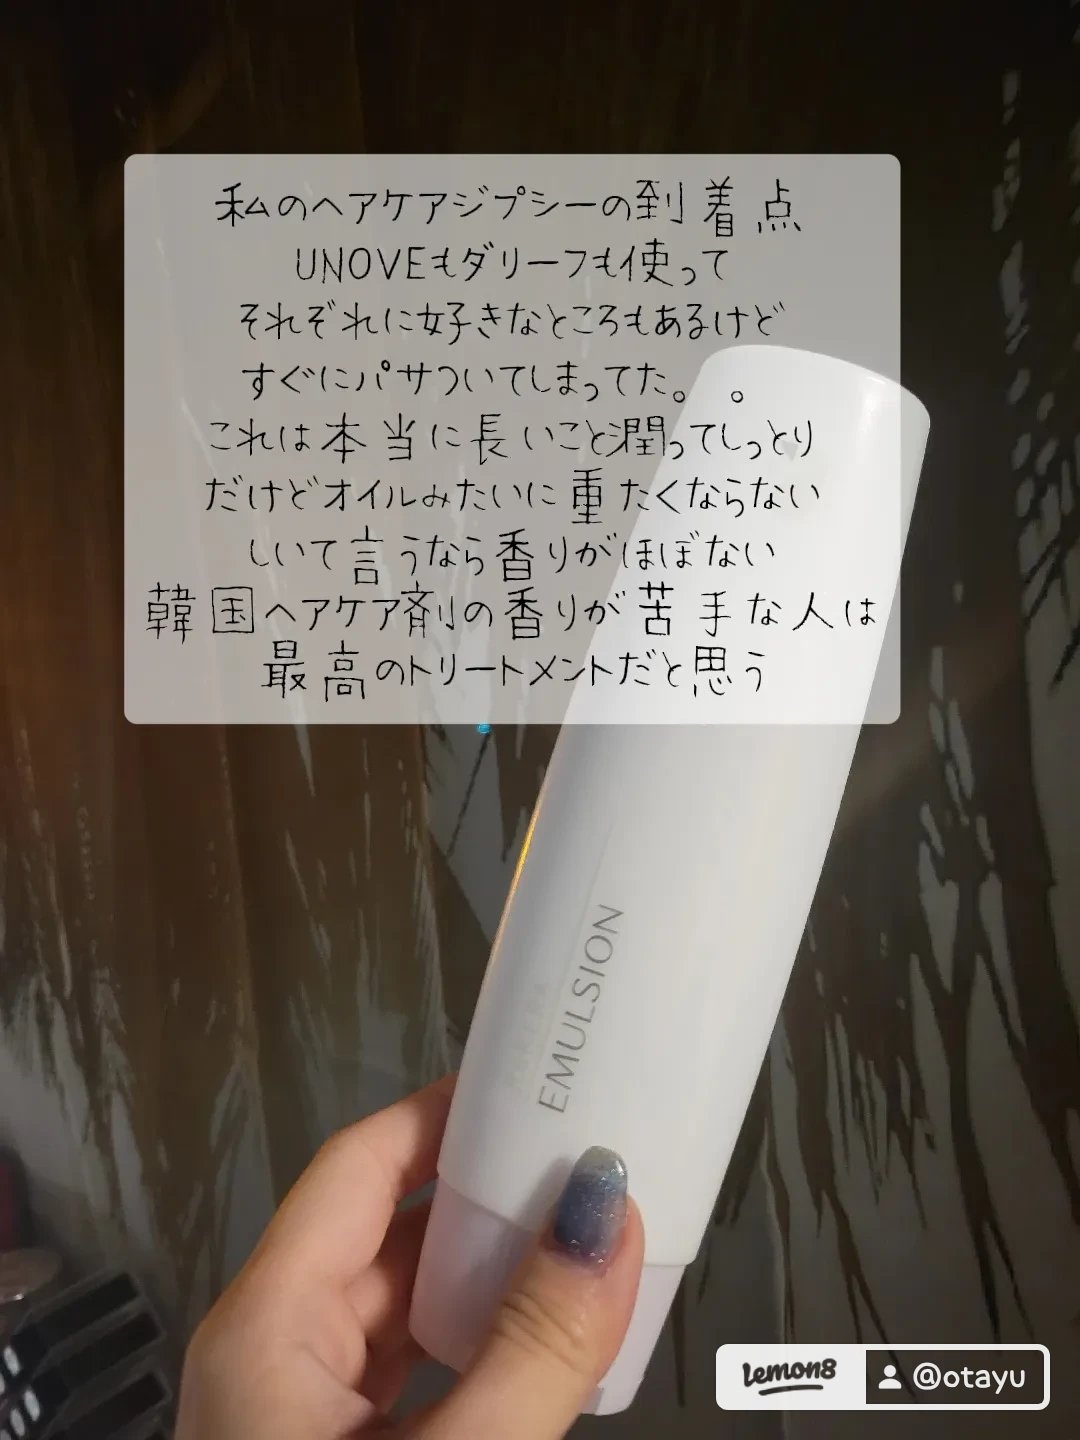 私のヘアケアジプシーの到着点
UNOVEもダリーフも使って
それぞれに好きなところもあるけど
すぐにパサついてしまってた。。
これは本当に長いこと潤ってしっとり
だけどオイルみたいに重たくならない
しいて言うなら香りがほぼない
韓国ヘアケア剤の香りが苦手な人は
最高のトリートメントだと思う
EMULSION
lemon8 @otayu